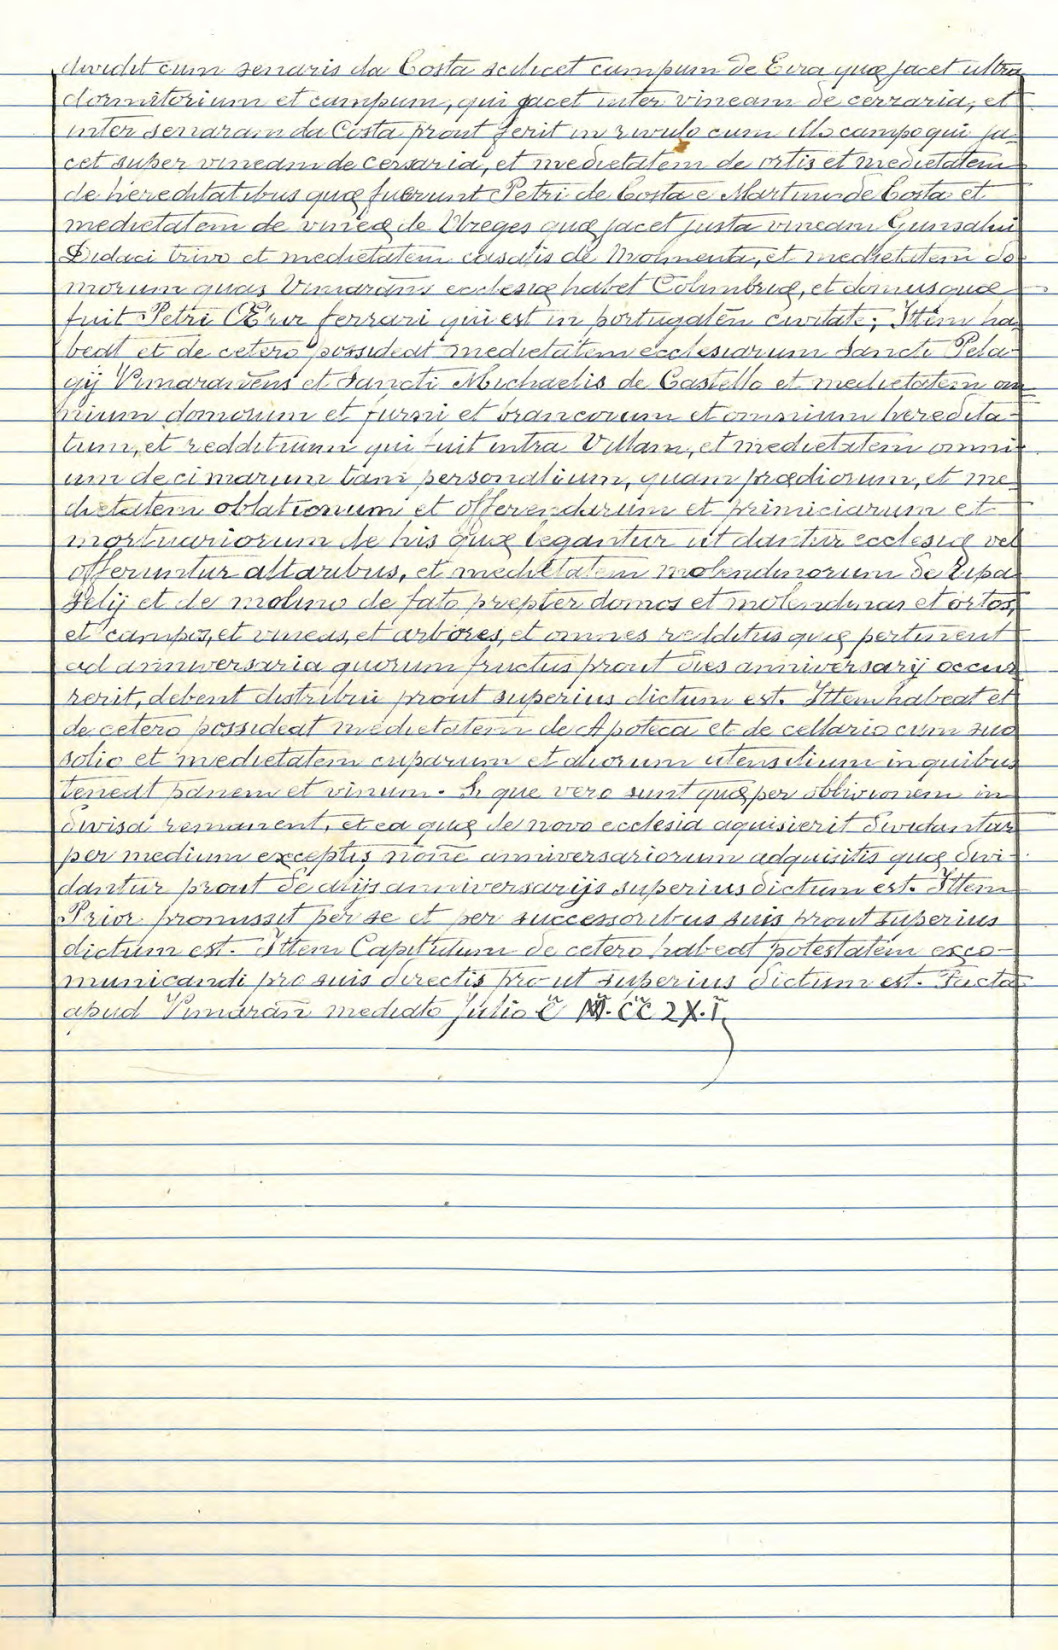 dividit cum senaris da Costa scilicet campum de Eira quæ jacet ultra
dormitorium et campum, qui jacet inter vineam de cerraria, et
inter senaram da Costa prout ferit in rivulo cum illo campo qui ja-
cet super vineam de cerraria, et medietatem de ortis et medietatem
de hereditatibus quæ fuerunt Petri de Costa e Martim de Costa et
medietatem de vineæ de Vreges quæ jacet justa vineam Gunsalui
Didaci trivo et medietatem casalis de Molmenta, et medietatem do-
morum quas Vimarañs ecclesiæ habet Colimbriæ, et domus quæ
fuit Petri ferrari qui est in portugalen̄ civitate; Ittem ha-
beat et de cetero possideat medietatem ecclesiarum Sancti Pela-
gij Vimaranens et Sancti Michaelis de Castello et medietatem om
nium domorum et furni et et omnium heredita-
tum, et reddituum qui fuit intra Villam, et medietatem omni-
um decimarum tam personalium, quam prædiorum, et me-
dietatem oblationum et offerendarum et primiciarum et
mortuariorum de his quæ legantur ut dantur ecclesiæ vel
offeruntur altaribus, et medietatem molendinorum de Ripa
Selij et de molino de fato propter domos et molendinas et ortos,
et campos, et vineas, et arbores, et omnes redditus quæ pertinent
ad anniversaria quorum fructus prout dies anniversarij occur
rerit, debent distribui prout superius dictum est. Ittem habeat et
de cetero possideat medietatem de Apoteca et de cellario cum suo
solio et medietatem cuparum et aliorum utensilium in quibus
teneat panem et vinum. Si que vero sunt quæ per oblivionem in
divisa remanent, et ea quæ de novo ecclesia aquisierit dividantur
per medium exceptis anniversariorum adquisitis quæ divi-
dantur prout de alijs anniversarijs superius dictum est. Ittem
Prior promissit per se et per successoribus suis prout superius
dictum est. Ittem Capitulum de cetero habeat potestatem exco-
municandi pro suis directis prout superius dictum est. Facta
apud Vimarañ mediato Julio